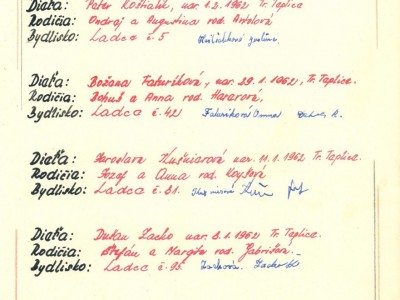 Dieťa: Peter Košťialik, nar. 1.2. 1962 Tr. Teplice
Rodičia: Ondrej a Augustína rod.
Bydlisko: Ladce č. 5
Dieťa: Božena Faturíková, nar. 29.1.1962, Tr. Teplice.
Rodičia: Bohuš a Anna rod. Hararová,
Bydlisko: Ladce č. 42 Faturíková Anna
Dieťa: Jaroslava Kušnierová nar. 11.1.1962 Tr. Teplice.
Rodičia: Jozef a Anna rod.
Bydlisko: Ladce č. 31.
Dieťa: Dušan Zacko nar. 8.1.1962 Tr. Teplice
Rodičia: Štefán a Margita rod. Gabrišová.
Bydlisko: Ladce č. 95 Zacková. Zacko